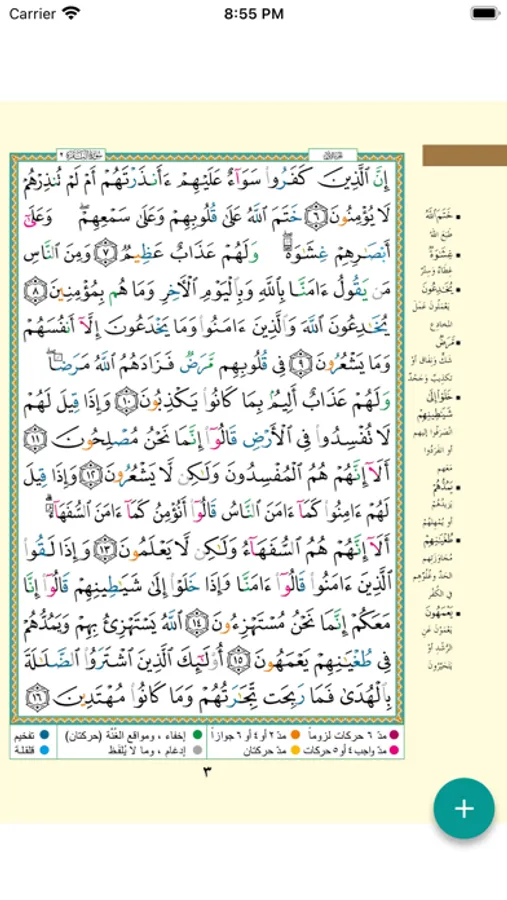 Carrier
8:55 PM
سُورَةُ البَقَرَةِ ٢
إِنَّ ٱلَّذِينَ كَفَرُوا۟ سَوَآءٌ عَلَيْهِمْ ءَأَنذَرْتَهُمْ أَمْ لَمْ تُنذِرْهُمْ
لَا يُؤْمِنُونَ ٦ خَتَمَ ٱللَّهُ عَلَىٰ قُلُوبِهِمْ وَعَلَىٰ سَمْعِهِمْ ۖ وَعَلَىٰٓ
أَبْصَـٰرِهِمْ غِشَـٰوَةٌ ۖ وَلَهُمْ عَذَابٌ عَظِيمٌ ٧ وَمِنَ ٱلنَّاسِ
مَن يَقُولُ ءَامَنَّا بِٱللَّهِ وَبِٱلْيَوْمِ ٱلْـَٔاخِرِ وَمَا هُم بِمُؤْمِنِينَ ٨
يُخَـٰدِعُونَ ٱللَّهَ وَٱلَّذِينَ ءَامَنُوا۟ وَمَا يَخْدَعُونَ إِلَّآ أَنفُسَهُمْ
وَمَا يَشْعُرُونَ ٩ فِى قُلُوبِهِم مَّرَضٌ فَزَادَهُمُ ٱللَّهُ مَرَضًا ۖ
وَلَهُمْ عَذَابٌ أَلِيمٌۢ بِمَا كَانُوا۟ يَكْذِبُونَ ١٠ وَإِذَا قِيلَ لَهُمْ
لَا تُفْسِدُوا۟ فِى ٱلْأَرْضِ قَالُوٓا۟ إِنَّمَا نَحْنُ مُصْلِحُونَ ١١
أَلَآ إِنَّهُمْ هُمُ ٱلْمُفْسِدُونَ وَلَـٰكِن لَّا يَشْعُرُونَ ١٢ وَإِذَا قِيلَ
لَهُمْ ءَامِنُوا۟ كَمَآ ءَامَنَ ٱلنَّاسُ قَالُوٓا۟ أَنُؤْمِنُ كَمَآ ءَامَنَ ٱلسُّفَهَآءُ ۗ
أَلَآ إِنَّهُمْ هُمُ ٱلسُّفَهَآءُ وَلَـٰكِن لَّا يَعْلَمُونَ ١٣ وَإِذَا لَقُوا۟
ٱلَّذِينَ ءَامَنُوا۟ قَالُوٓا۟ ءَامَنَّا وَإِذَا خَلَوْا۟ إِلَىٰ شَيَـٰطِينِهِمْ قَالُوٓا۟ إِنَّا
مَعَكُمْ إِنَّمَا نَحْنُ مُسْتَهْزِءُونَ ١٤ ٱللَّهُ يَسْتَهْزِئُ بِهِمْ وَيَمُدُّهُمْ
فِى طُغْيَـٰنِهِمْ يَعْمَهُونَ ١٥ أُو۟لَـٰٓئِكَ ٱلَّذِينَ ٱشْتَرَوُا۟ ٱلضَّلَـٰلَةَ
بِٱلْهُدَىٰ فَمَا رَبِحَت تِّجَـٰرَتُهُمْ وَمَا كَانُوا۟ مُهْتَدِينَ ١٦
خَتَمَ ٱللَّهُ
طَبَعَ اللهُ
غِشَـٰوَةٌ
غِطَاءٌ وَسِتْرٌ
يُخَـٰدِعُونَ
يَعْمَلُونَ عَمَلَ
المخادع
مَرَضٌ
شَكٌّ وَنِفَاقٌ أوْ
تكذيبٌ وَجَحْدٌ
خَلَوْا۟ إِلَىٰ
شَيَـٰطِينِهِمْ
انْصَرَفُوا إليهم
أو انفَرَدُوا
مَعَهم
يَمُدُّهُمْ
يَزِيدُهُمْ
أو يُمْهِلُهُمْ
طُغْيَـٰنِهِمْ
مُجَاوَزَتِهِم
الحَدَّ وغُلُوِّهِم
في الكُفْرِ
يَعْمَهُونَ
يَعْمَوْنَ عَنِ
الرُّشْدِ أوْ
يَتَحَيَّرُونَ
مدّ ٦ حركات لزوماً
مدّ ٢ أو ٤ أو ٦ جوازاً
إخفاء ، ومواقع الغُنَّة (حركتان)
تفخيم
مدّ واجب ٤ أو ٥ حركات
مدّ حركتان
إدغام ، وما لا يُلفَظ
قلقلة
٣